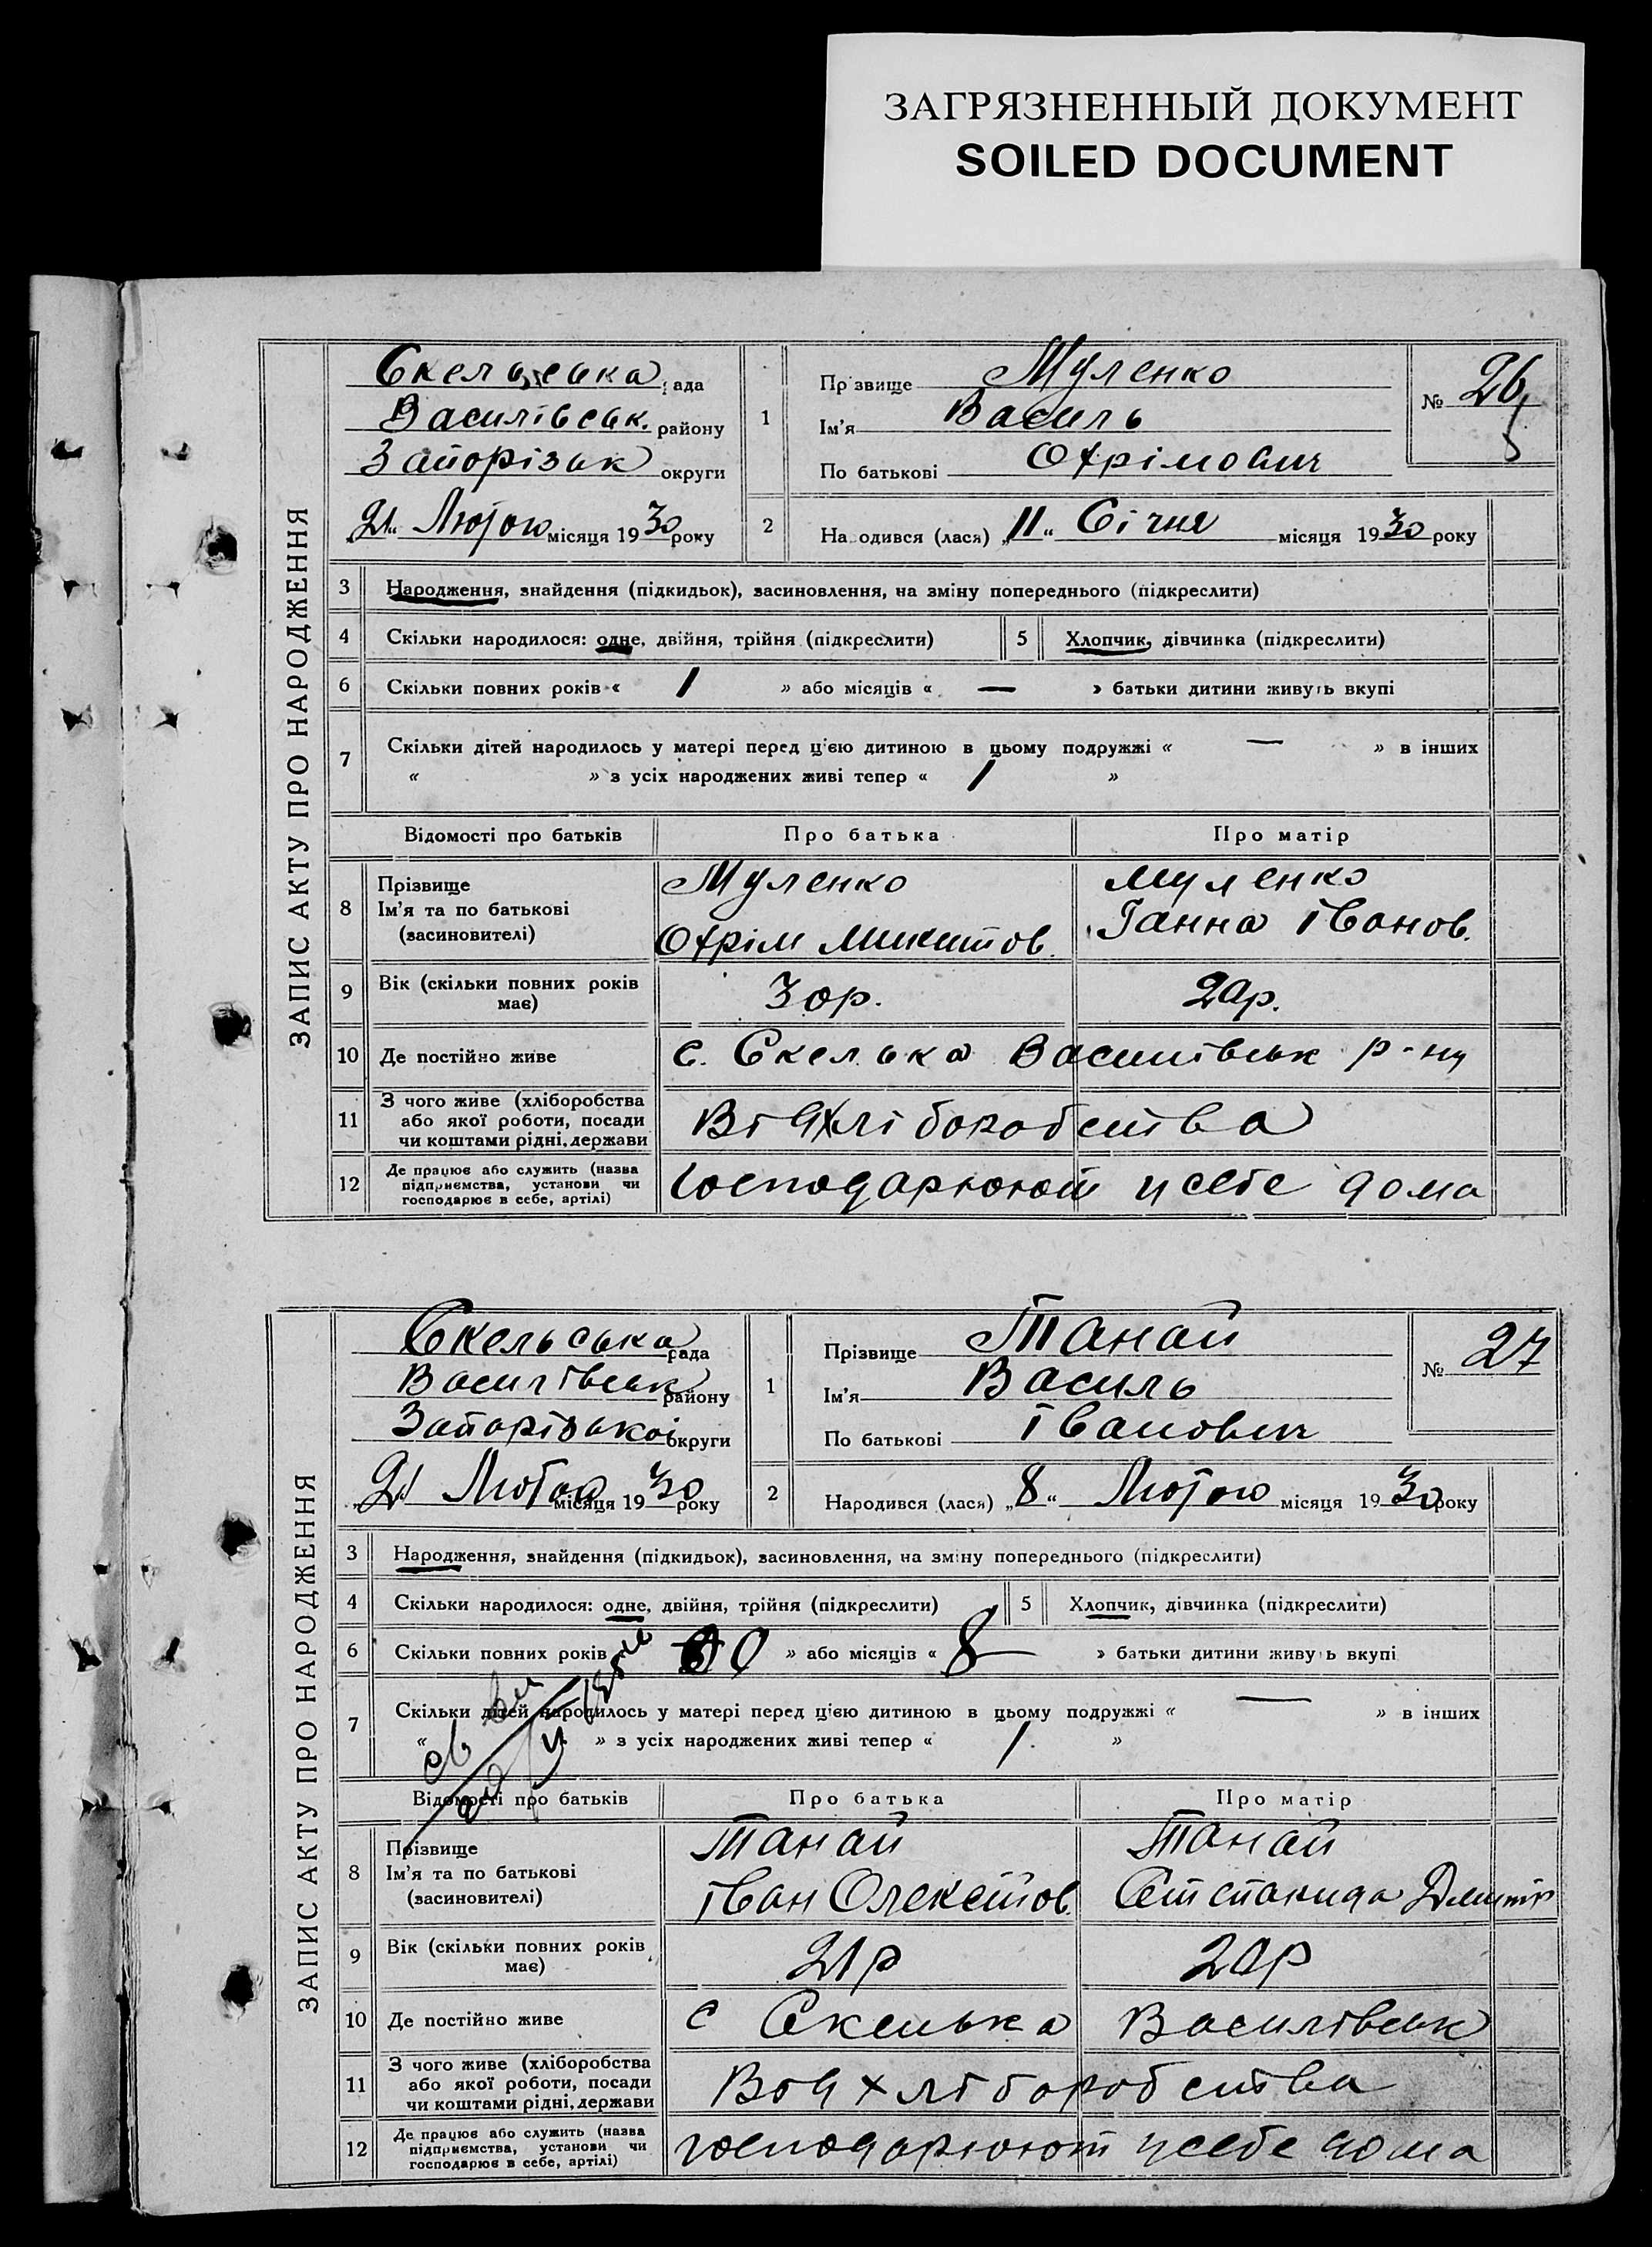 ЗАГРЯЗНЕННЫЙ ДОКУМЕНТ
SOILED DOCUMENT
ЗАПИС АКТУ ПРО НАРОДЖЕННЯ
Скельська рада
Василівськ. району
Запорізьк округи
„21“ Лютого місяця 1930 року
1
Прізвище Муленко
Ім'я Василь
По батькові Охрімович
№ 26
2
Народився (лася) „11“ Січня місяця 1930 року
3 Народження, знайдення (підкидьок), засиновлення, на зміну попереднього (підкреслити)
4 Скільки народилося: одне, двійня, трійня (підкреслити) 5 Хлопчик, дівчинка (підкреслити)
6 Скільки повних років « 1 » або місяців « — » батьки дитини живуть вкупі
7 Скільки дітей народилось у матері перед цією дитиною в цьому подружжі « — » в інших
« » з усіх народжених живі тепер « 1 »
Відомості про батьків Про батька Про матір
8 Прізвище Ім'я та по батькові (засиновителі)
Муленко Охрім Микитов.
Муленко Ганна Іванов.
9 Вік (скільки повних років має) 30р. 20р.
10 Де постійно живе с. Скелька Василівськ р-ну
11 З чого живе (хліборобства або якої роботи, посади чи коштами рідні, держави Від хліборобства
12 Де працює або служить (назва підприємства, установи чи господарює в себе, артілі) Господарюють у себе дома
ЗАПИС АКТУ ПРО НАРОДЖЕННЯ
Скельська рада
Василівськ району
Запорізької округи
„21“ Лютого місяця 1930 року
1
Прізвище Танай
Ім'я Василь
По батькові Іванович
№ 27
2
Народився (лася) „8“ Лютого місяця 1930 року
3 Народження, знайдення (підкидьок), засиновлення, на зміну попереднього (підкреслити)
4 Скільки народилося: одне, двійня, трійня (підкреслити) 5 Хлопчик, дівчинка (підкреслити)
6 Скільки повних років 0 » або місяців « 8 » батьки дитини живуть вкупі
7 Скільки дітей народилось у матері перед цією дитиною в цьому подружжі « — » в інших
« » з усіх народжених живі тепер « 1 »
Відомості про батьків Про батька Про матір
8 Прізвище Ім'я та по батькові (засиновителі)
Танай Іван
Танай Дмитр
9 Вік (скільки повних років має) 21р 20р
10 Де постійно живе с Скелька Василівськ
11 З чого живе (хліборобства або якої роботи, посади чи коштами рідні, держави Від хліборобства
12 Де працює або служить (назва підприємства, установи чи господарює в себе, артілі) господарюють у себе дома